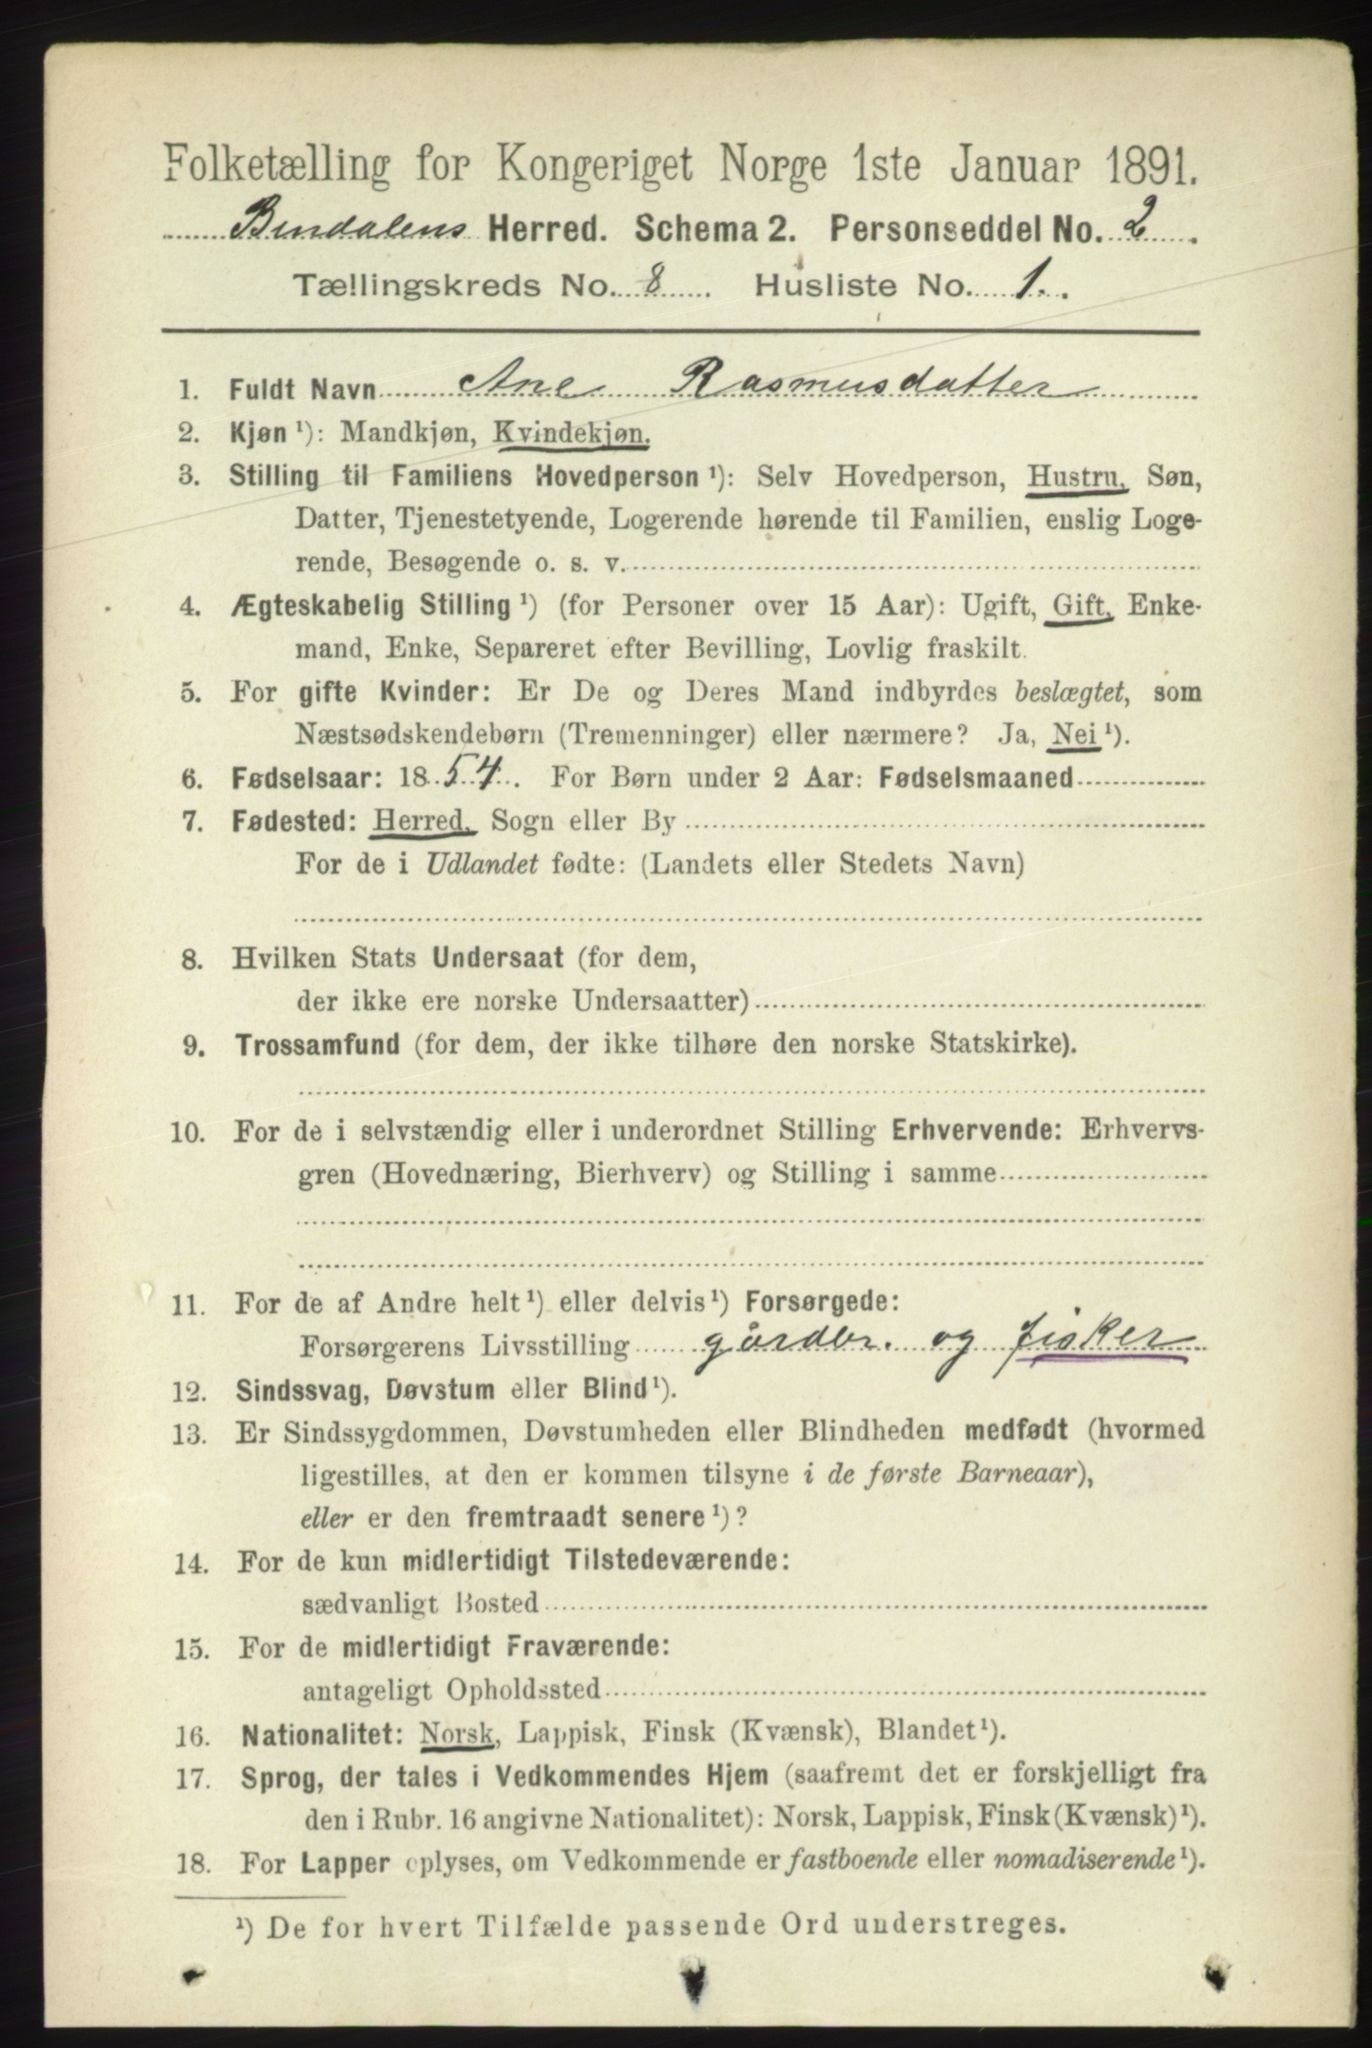 Folketælling for Kongeriget Norge 1ste Januar 1891.
Bindalens Herred. Schema 2. Personseddel No. 2.
Tællingskreds No. 8 Husliste No. 1.
1. Fuldt Navn Ane Rasmusdatter
2. Kjøn ¹): Mandkjøn, Kvindekjøn.
3. Stilling til Familiens Hovedperson ¹): Selv Hovedperson, Hustru, Søn,
Datter, Tjenestetyende, Logerende hørende til Familien, enslig Loge-
rende, Besøgende o. s. v.
4. Ægteskabelig Stilling ¹) (for Personer over 15 Aar): Ugift, Gift, Enke-
mand, Enke, Separeret efter Bevilling, Lovlig fraskilt.
5. For gifte Kvinder: Er De og Deres Mand indbyrdes beslægtet, som
Næstsødskendebørn (Tremenninger) eller nærmere? Ja, Nei ¹).
6. Fødselsaar: 1854. For Børn under 2 Aar: Fødselsmaaned
7. Fødested: Herred, Sogn eller By
For de i Udlandet fødte: (Landets eller Stedets Navn)
8. Hvilken Stats Undersaat (for dem,
der ikke ere norske Undersaatter)
9. Trossamfund (for dem, der ikke tilhøre den norske Statskirke).
10. For de i selvstændig eller i underordnet Stilling Erhvervende: Erhvervs-
gren (Hovednæring, Bierhverv) og Stilling i samme
11. For de af Andre helt ¹) eller delvis ¹) Forsørgede:
Forsørgerens Livsstilling gårdbr. og fisker
12. Sindssvag, Døvstum eller Blind ¹).
13. Er Sindssygdommen, Døvstumheden eller Blindheden medfødt (hvormed
ligestilles, at den er kommen tilsyne i de første Barneaar),
eller er den fremtraadt senere ¹)?
14. For de kun midlertidigt Tilstedeværende:
sædvanligt Bosted
15. For de midlertidigt Fraværende:
antageligt Opholdssted
16. Nationalitet: Norsk, Lappisk, Finsk (Kvænsk), Blandet ¹).
17. Sprog, der tales i Vedkommendes Hjem (saafremt det er forskjelligt fra
den i Rubr. 16 angivne Nationalitet): Norsk, Lappisk, Finsk (Kvænsk) ¹).
18. For Lapper oplyses, om Vedkommende er fastboende eller nomadiserende ¹).
¹) De for hvert Tilfælde passende Ord understreges.